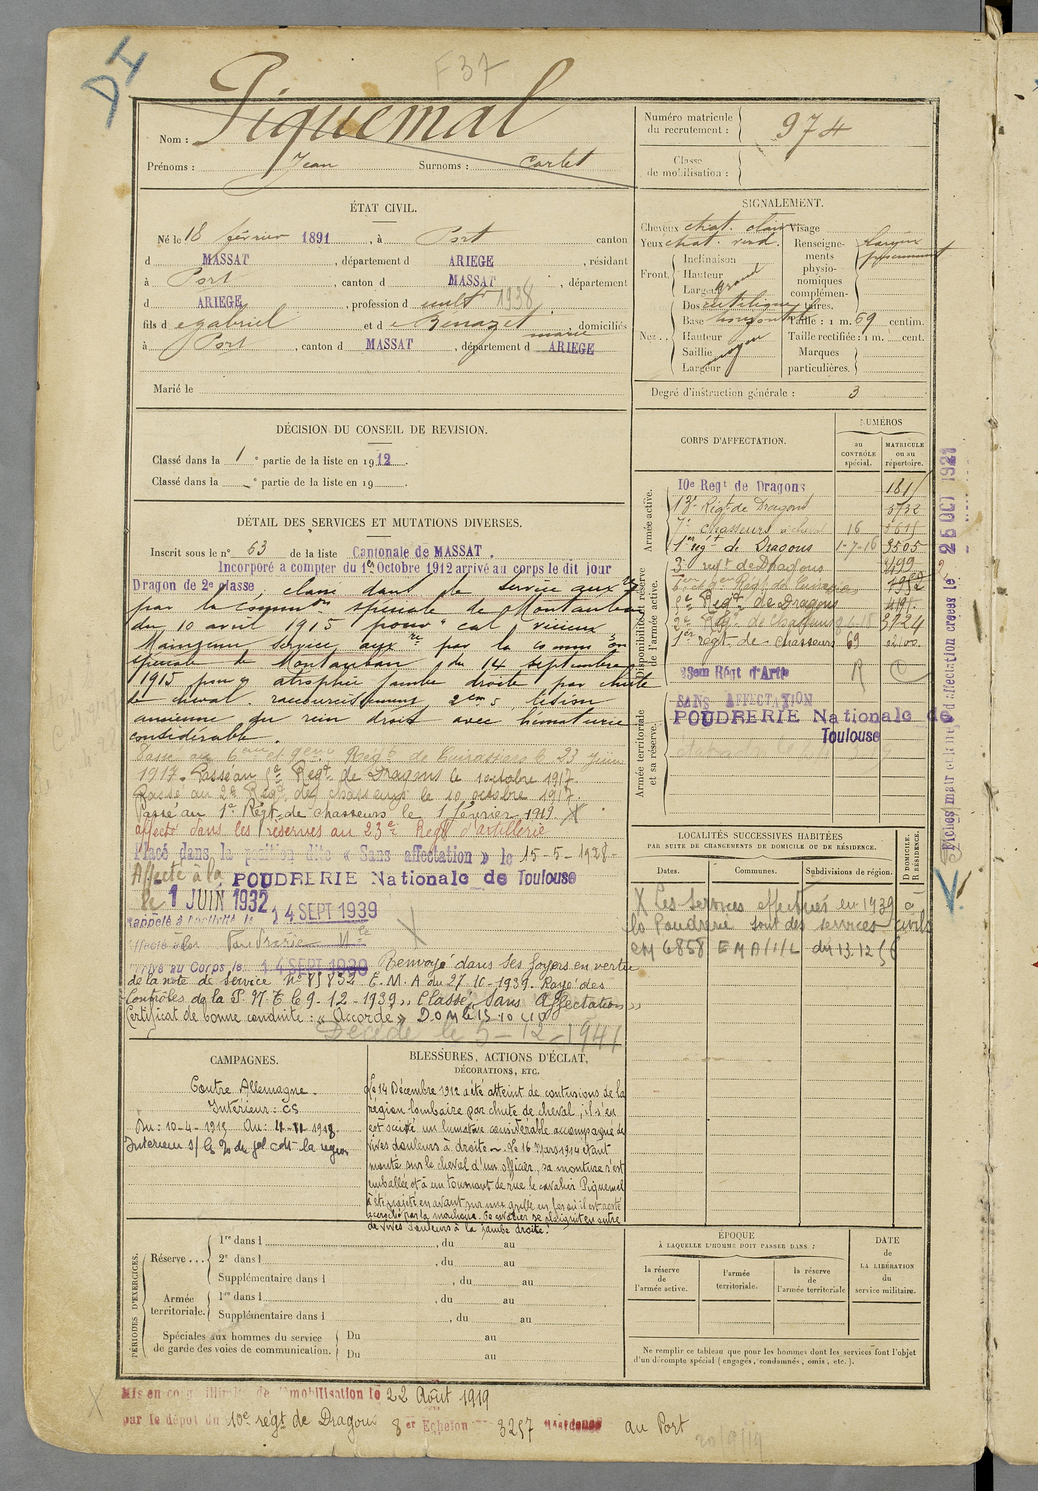 D I
F 37
Piquemal
Nom :
Prénoms : Jean Surnoms : Carlet
ÉTAT CIVIL.
Né le 18 février 1891, à Port canton
d MASSAT, département d ARIEGE, résidant
à Port, canton d MASSAT, département
d ARIEGE, profession d cultr 1938
fils d e gabriel et d e Bénazet marie domiciliés
à Port, canton d MASSAT, département d ARIEGE
Marié le
DÉCISION DU CONSEIL DE REVISION.
Classé dans la 1e partie de la liste en 1912.
Classé dans la e partie de la liste en 19
DÉTAIL DES SERVICES ET MUTATIONS DIVERSES.
Inscrit sous le n° 63 de la liste Cantonale de MASSAT.
Incorporé à compter du 1er Octobre 1912 arrivé au corps le dit jour
Dragon de 2e classe, classé dans le service auxre
par la common spéciale de Montauban
du 10 avril 1915 pour " cal vicieux
Maintenu service auxre par la commion
spéciale de Montauban du 14 septembre
1915 pour atrophie jambe droite par chute
de cheval. raccourcissement 2cm 5 lésion
ancienne du rein droit avec hématurie
considérable.
Passé au 6eme et 9eme Régt de Cuirassiers le 23 Juin
1917. Passé au 8e Regt de Dragons le 1 octobre 1917.
Passé au 2e Régt de chasseurs le 10 octobre 1917.
Passé au 1er Régt de chasseurs le 1 février 1919. X
affecté dans les réserves au 23e Regt d'artillerie
Placé dans la position dite « Sans affectation » le 15-5-1928
Affecté à la POUDRERIE Nationale de Toulouse
le 1 JUIN 1932
Rappelé à l'activité le 14 SEPT 1939
Affecté à la Poudrerie Nle
Arrivé au Corps le 14 SEPT 1939 Renvoyé dans ses foyers en vertu
de la note de Service N° 81832 E.M.A du 27-10-1939. Rayé des
Contrôles de la P.N.T. le 9-12-1939 ,, Classé ,, Sans Affectation ,,
Certificat de bonne conduite : « Accordé »
Décédé le 5-12-1941
CAMPAGNES.
Contre Allemagne.
Intérieur : CS
Du : 10-4-1915 Au : 11-11-1918.
BLESSURES, ACTIONS D'ÉCLAT,
DÉCORATIONS, ETC.
Le 14 Décembre 1912 a été atteint de contusions de la
région lombaire par chute de cheval, il s'en
est suivi un lumatire considérable accompagné de
vives douleurs à droite - Le 16 Mars 1914 étant
monté sur le cheval d'un officier, sa monture s'est
emballée et à un tournant de rue le cavalier Piquemal
a été projeté en avant sur une grille en fer où il est resté
accroché par la
de vives douleurs à la jambe droite.
PÉRIODES D'EXERCICES.
Réserve . . . 1re dans l , du au
2e dans l , du au
Supplémentaire dans l , du au
Armée territoriale. 1re dans l , du au
Supplémentaire dans l , du au
Spéciales aux hommes du service Du au
de garde des voies de communication. Du au
Numéro matricule
du recrutement : 974
Classe
de mobilisation :
SIGNALEMENT.
Cheveux chat. clair Visage
Yeux chat. verd.
Front. Inclinaison
Hauteur
Largeur grand
Nez. Dos rectiligne
Base horizontale
Hauteur
Saillie
Largeur moyen
Renseignements physionomiques complémentaires.
Taille : 1 m. 69 centim.
Taille rectifiée : 1 m. cent.
Marques
particulières.
Degré d'instruction générale : 3
CORPS D'AFFECTATION.
NUMÉROS
au CONTRÔLE spécial.
MATRICULE ou au répertoire.
Armée active.
10e Regt de Dragons 181
13e Régt de Dragons 5732
7e chasseurs à cheval 16
1er régt de Dragons 1-7-16 9505
Disponibilité et réserve de l'armée active.
3e régt de Dragons 2499
8e Regt de Dragons
2e Regt de chasseurs 3724
1er régt de chasseurs 69
23em Régt d'Artie
Armée territoriale et sa réserve.
SANS AFFECTATION
POUDRERIE Nationale de
Toulouse
LOCALITÉS SUCCESSIVES HABITÉES
PAR SUITE DE CHANGEMENTS DE DOMICILE OU DE RÉSIDENCE.
Dates. Communes. Subdivisions de région. D DOMICILE. R RÉSIDENCE.
X Les services effectués en 1939 à
la Poudrerie sont des services civils
CM 6858 EMA/1/L du 13.12.56
ÉPOQUE
À LAQUELLE L'HOMME DOIT PASSER DANS :
la réserve de l'armée active.
l'armée territoriale.
la réserve de l'armée territoriale
DATE
de
LA LIBÉRATION
du
service militaire.
Ne remplir ce tableau que pour les hommes dont les services font l'objet
d'un décompte spécial (engagés, condamnés, omis, etc.).
26 OCT 1921
Mis en congé illimité de démobilisation le 22 Août 1919
par le dépôt du 10e régt de Dragons 8er Echelon 3257 au Port
20/9/19